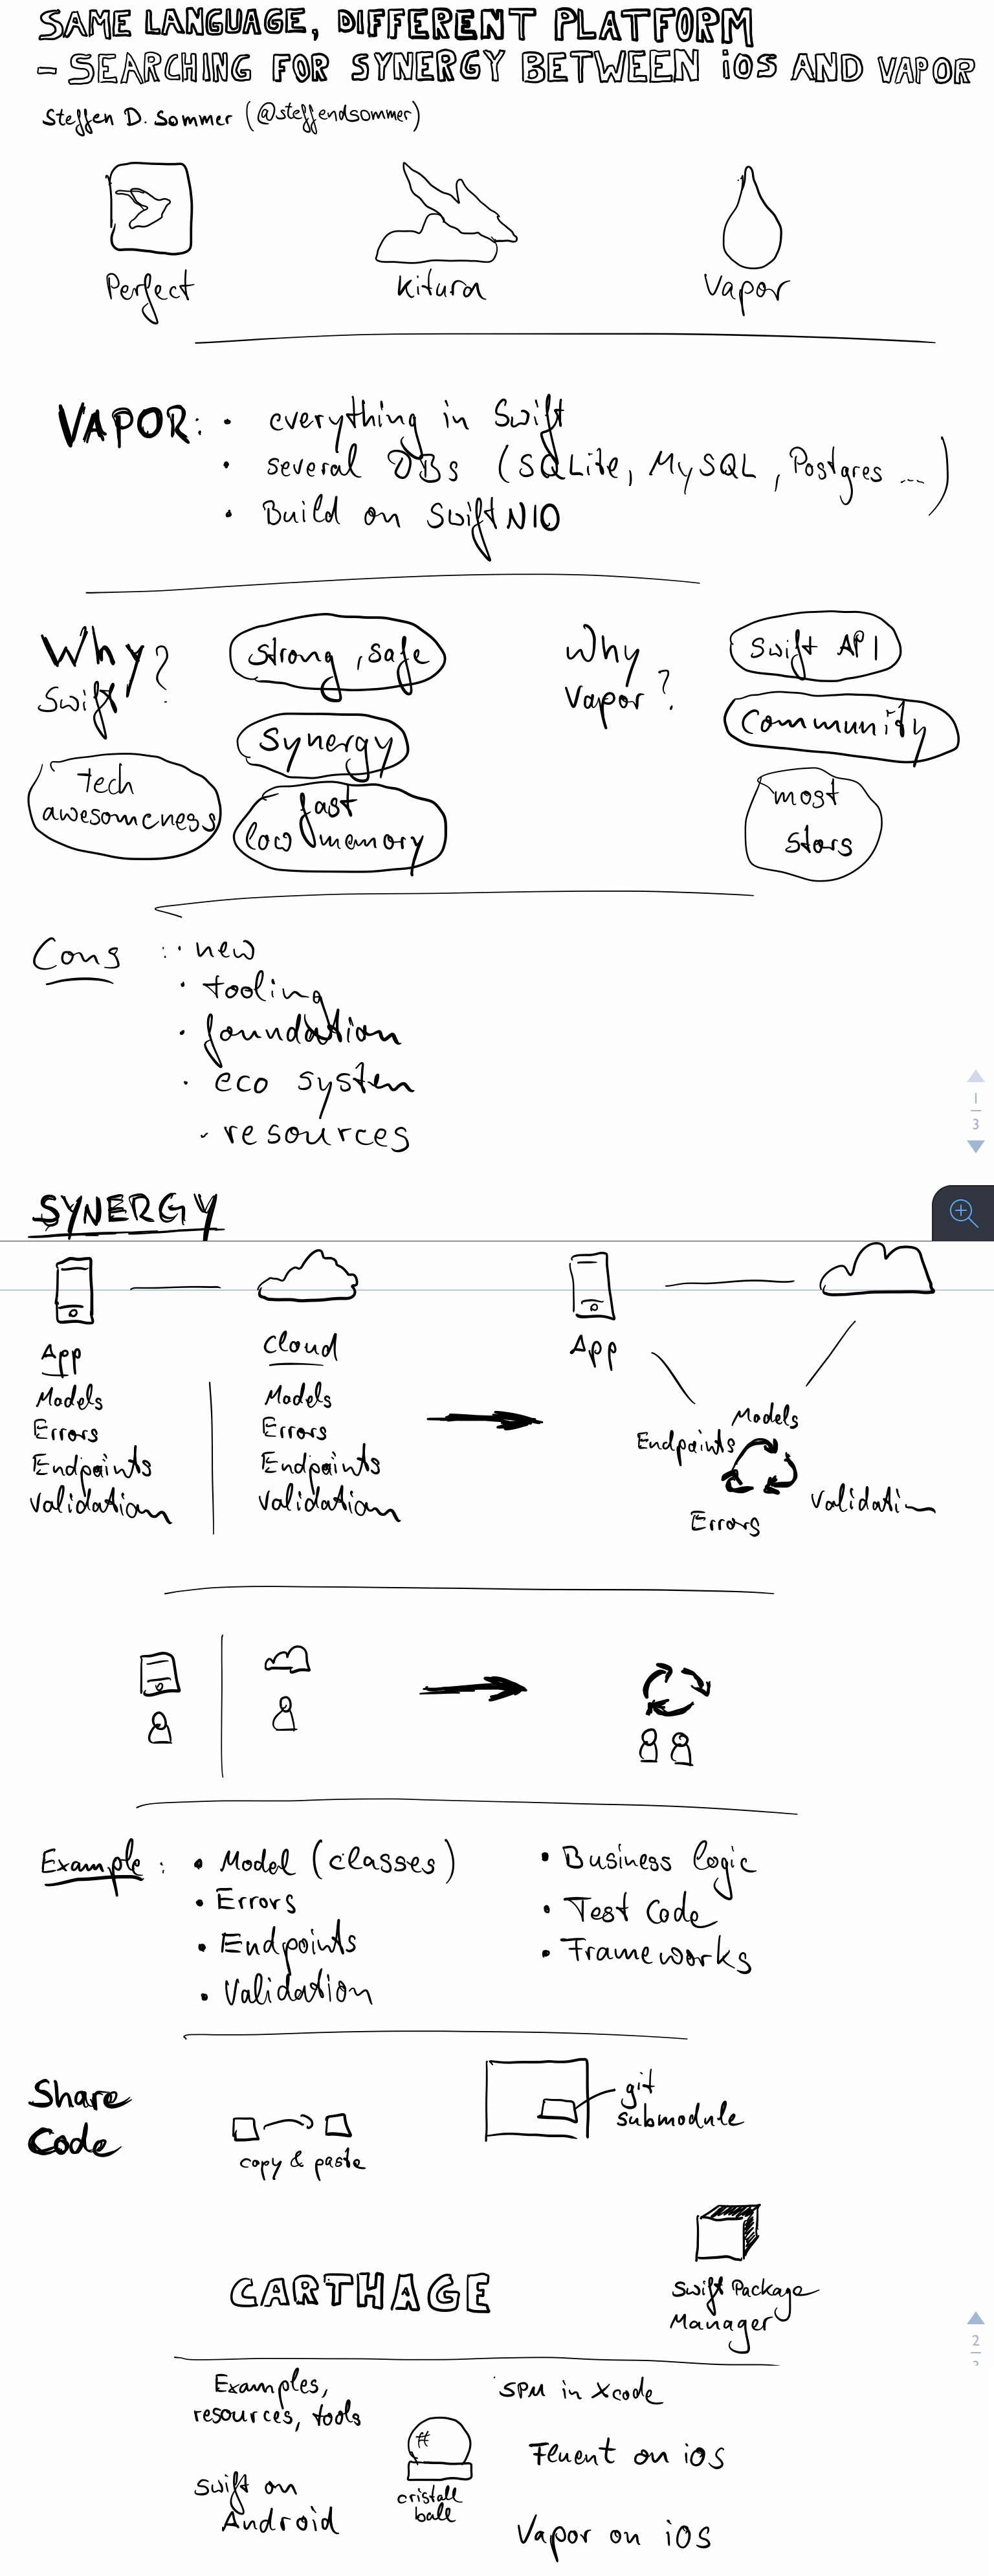 SAME LANGUAGE, DIFFERENT PLATFORM
- SEARCHING FOR SYNERGY BETWEEN iOS AND VAPOR
Steffen D. Sommer (@steffendsommer)
Perfect
Kitura
Vapor
VAPOR: • everything in Swift
• several DBs (SQLite, MySQL, Postgres ...)
• Build on SwiftNIO
Why?
Swift
strong, safe
Synergy
tech
awesomeness
fast
low memory
Why
Vapor?
Swift API
Community
most
stars
Cons : • new
• tooling
• foundation
• eco system
• resources
1
3
SYNERGY
App
Models
Errors
Endpoints
Validation
Cloud
Models
Errors
Endpoints
Validation
App
Models
Endpoints
Validation
Errors
Example : • Model (classes)
• Errors
• Endpoints
• Validation
• Business logic
• Test Code
• Frameworks
Share
Code
copy & paste
git
submodule
CARTHAGE
Swift Package
Manager
2
Examples,
resources, tools
SPM in Xcode
#
cristall
ball
Fluent on iOS
Swift on
Android
Vapor on iOS